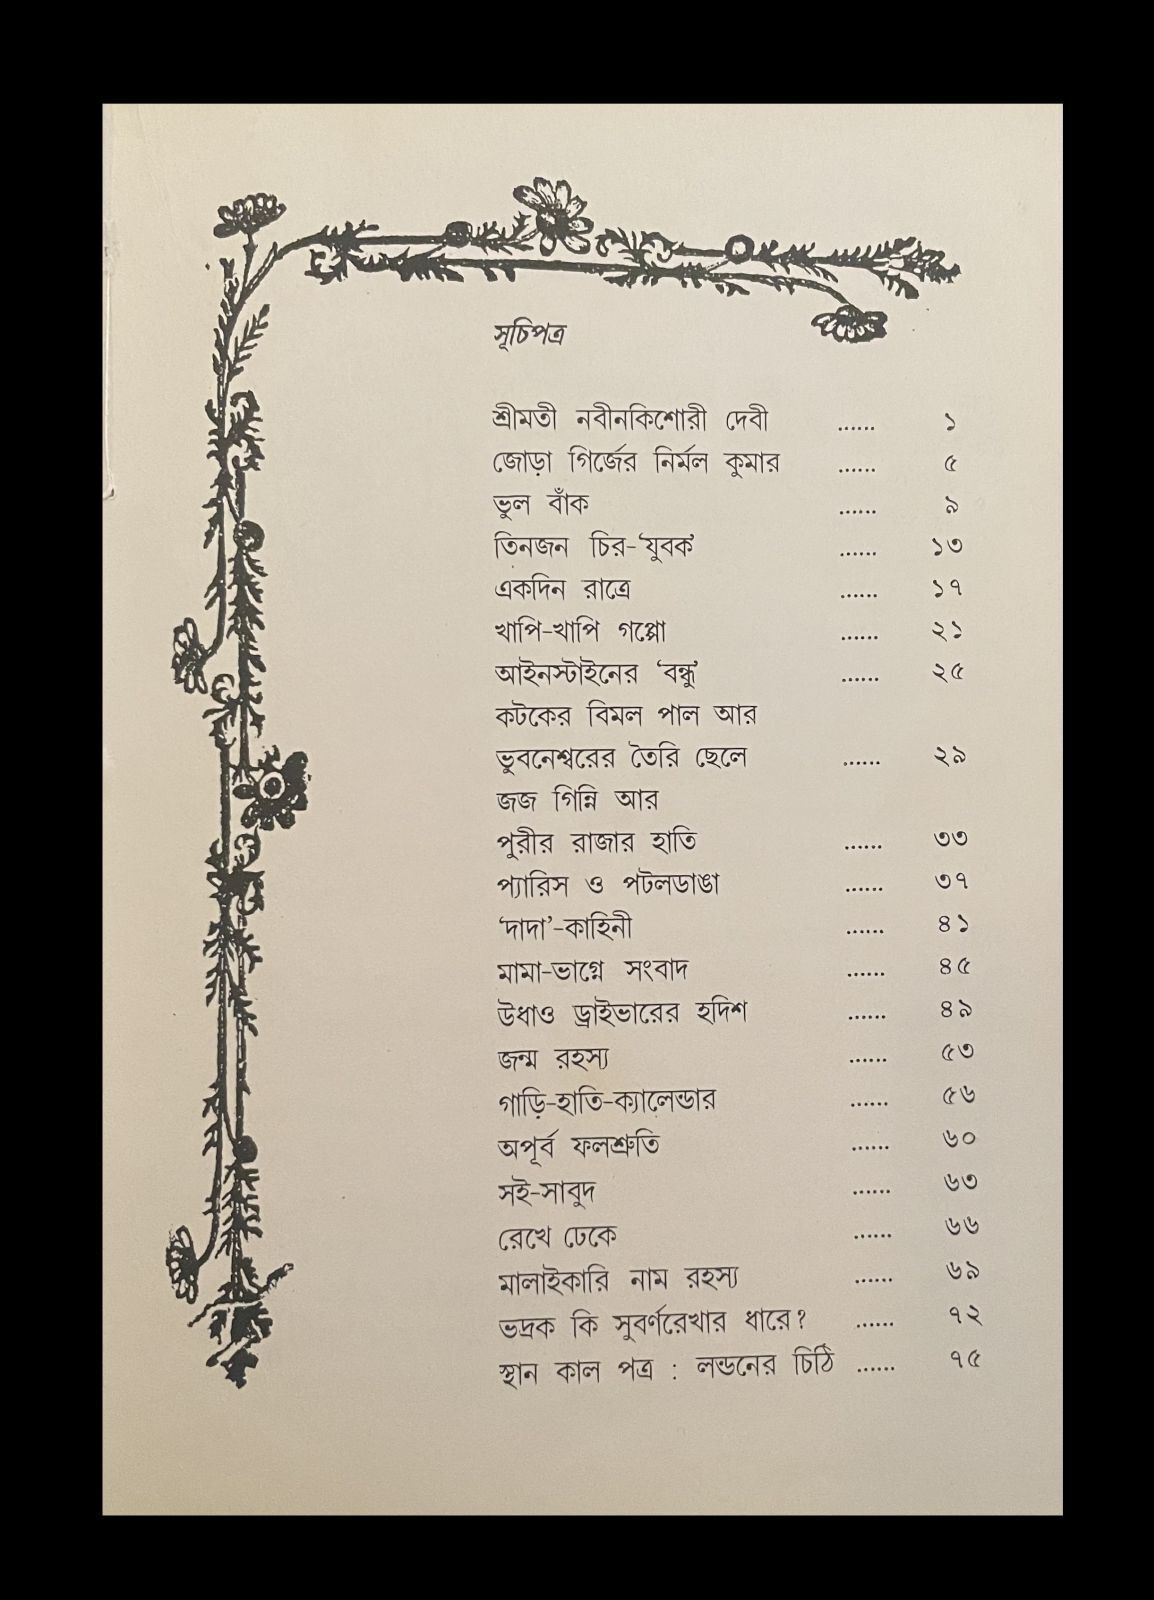 সূচিপত্র
শ্রীমতী নবীনকিশোরী দেবী ...... ১
জোড়া গির্জের নির্মল কুমার ...... ৫
ভুল বাঁক ...... ৯
তিনজন চির-‘যুবক’ ...... ১৩
একদিন রাত্রে ...... ১৭
খাপি-খাপি গপ্পো ...... ২১
আইনস্টাইনের ‘বন্ধু’ ...... ২৫
কটকের বিমল পাল আর
ভুবনেশ্বরের তৈরি ছেলে ...... ২৯
জজ গিন্নি আর
পুরীর রাজার হাতি ...... ৩৩
প্যারিস ও পটলডাঙা ...... ৩৭
‘দাদা’-কাহিনী ...... ৪১
মামা-ভাগ্নে সংবাদ ...... ৪৫
উধাও ড্রাইভারের হদিশ ...... ৪৯
জন্ম রহস্য ...... ৫৩
গাড়ি-হাতি-ক্যালেন্ডার ...... ৫৬
অপূর্ব ফলশ্রুতি ...... ৬০
সই-সাবুদ ...... ৬৩
রেখে ঢেকে ...... ৬৬
মালাইকারি নাম রহস্য ...... ৬৯
ভদ্রক কি সুবর্ণরেখার ধারে? ...... ৭২
স্থান কাল পত্র : লন্ডনের চিঠি ...... ৭৫